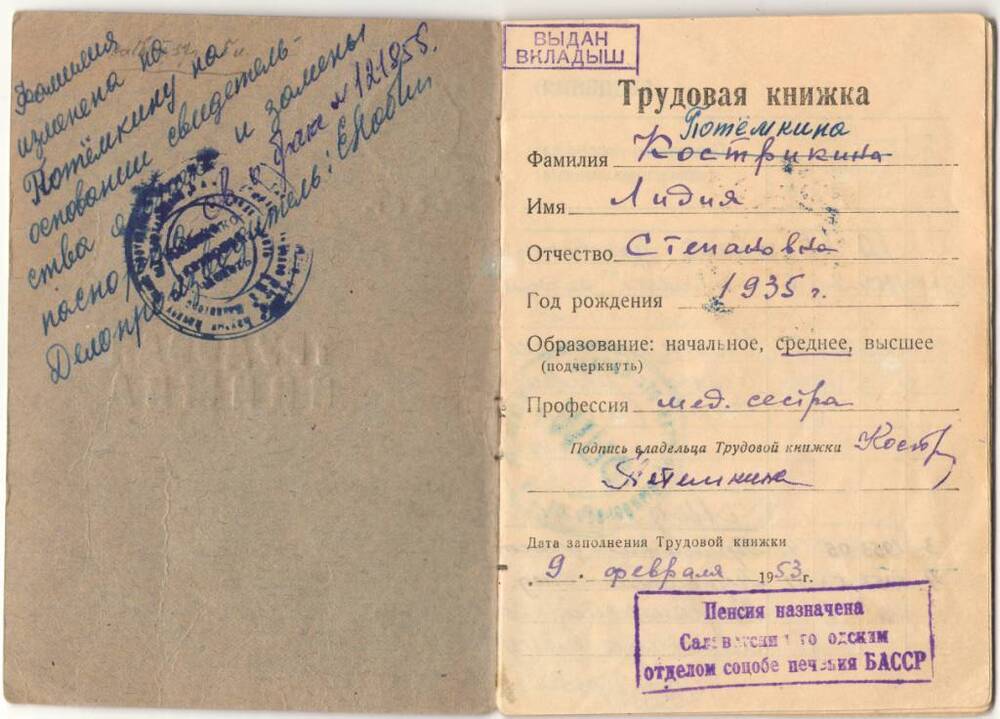 Фамилия
изменена по
Потёмкину на
основании свидетель-
ства о браке и замены
паспорта № 121855.
Делопроизводитель: ЕНовик
ВЫДАН
ВКЛАДЫШ
Трудовая книжка
Потёмкина
Фамилия Кострикина
Имя Лидия
Отчество Степановна
Год рождения 1935 г.
Образование: начальное, среднее, высшее
(подчеркнуть)
Профессия мед. сестра
Подпись владельца Трудовой книжки Костр
Потемкина
Дата заполнения Трудовой книжки
9. февраля 1953 г.
Пенсия назначена
Салаватским городским
отделом социального обеспечения БАССР